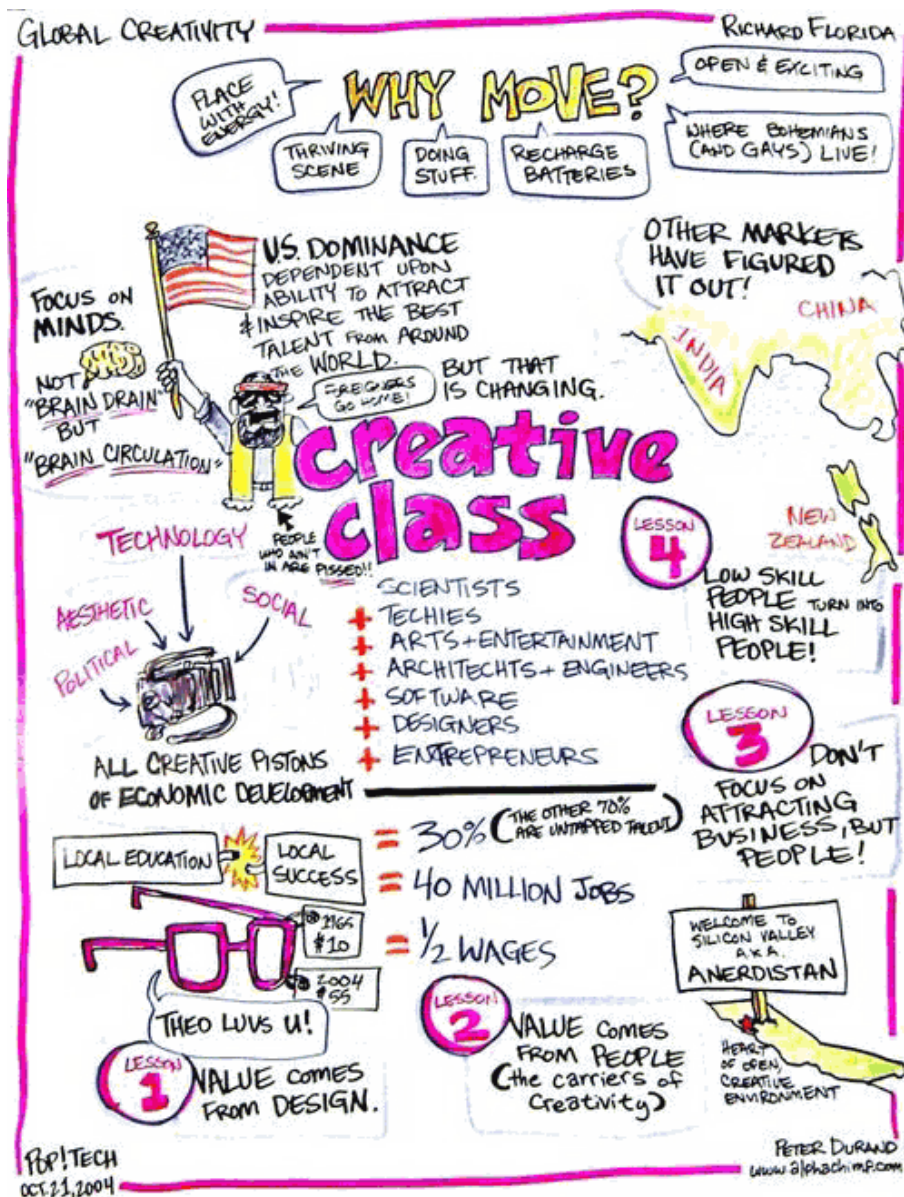 GLOBAL CREATIVITY
RICHARD FLORIDA
WHY MOVE?
PLACE
WITH
ENERGY!
THRIVING
SCENE
DOING
STUFF.
RECHARGE
BATTERIES
OPEN & EXCITING
WHERE BOHEMIANS
(AND GAYS) LIVE!
FOCUS ON
MINDS.
NOT
"BRAIN DRAIN"
BUT
"BRAIN CIRCULATION"
U.S. DOMINANCE
DEPENDENT UPON
ABILITY TO ATTRACT
& INSPIRE THE BEST
TALENT FROM AROUND
THE WORLD.
FOREIGNERS
GO HOME!
BUT THAT
IS CHANGING.
OTHER MARKETS
HAVE FIGURED
IT OUT!
CHINA
INDIA
NEW
ZEALAND
creative
class
PEOPLE
WHO AIN'T
IN ARE PISSED!!
TECHNOLOGY
AESTHETIC
SOCIAL
POLITICAL
ALL CREATIVE PISTONS
OF ECONOMIC DEVELOPMENT
SCIENTISTS
+ TECHIES
+ ARTS + ENTERTAINMENT
+ ARCHITECHTS + ENGINEERS
+ SOFTWARE
+ DESIGNERS
+ ENTREPRENEURS
= 30% (THE OTHER 70%
ARE UNTAPPED TALENT)
= 40 MILLION JOBS
= 1/2 WAGES
LESSON
4
LOW SKILL
PEOPLE TURN INTO
HIGH SKILL
PEOPLE!
LESSON
3
DON'T
FOCUS ON
ATTRACTING
BUSINESS, BUT
PEOPLE!
LOCAL EDUCATION
LOCAL
SUCCESS
$10
2004
THEO LUVS U!
LESSON
1
VALUE COMES
FROM DESIGN.
LESSON
2
VALUE COMES
FROM PEOPLE
(the carriers of
Creativity)
WELCOME TO
SILICON VALLEY
A.K.A.
ANERDISTAN
HEART
OF OPEN,
CREATIVE
ENVIRONMENT
POP!TECH
OCT.21,2004
PETER DURAND
www.alphachimp.com